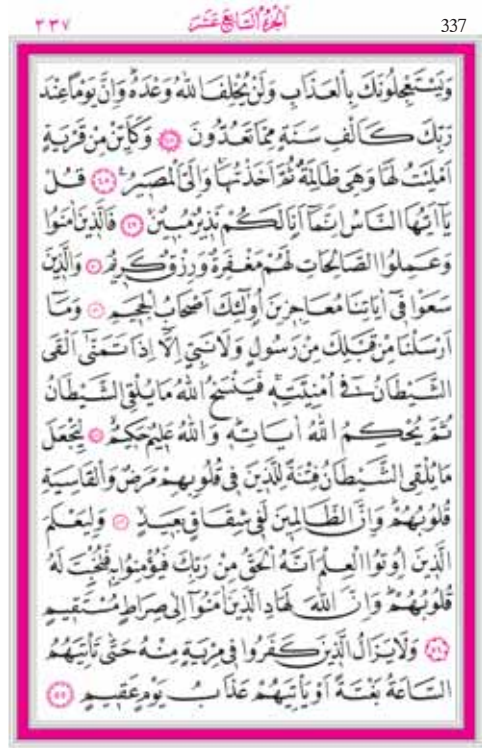 ٣٣٧ الجزء السابع عشر 337
وَيَسْتَعْجِلُونَكَ بِالْعَذَابِ وَلَنْ يُخْلِفَ اللّٰهُ وَعْدَهُ وَاِنَّ يَوْمًا عِنْدَ
رَبِّكَ كَاَلْفِ سَنَةٍ مِمَّا تَعُدُّونَ ﴿٤٧﴾ وَكَاَيِّنْ مِنْ قَرْيَةٍ
اَمْلَيْتُ لَهَا وَهِيَ ظَالِمَةٌ ثُمَّ اَخَذْتُهَا وَاِلَيَّ الْمَصِيرُ ﴿٤٨﴾ قُلْ
يَٓا اَيُّهَا النَّاسُ اِنَّمَٓا اَنَا۬ لَكُمْ نَذِيرٌ مُبِينٌ ﴿٤٩﴾ فَالَّذِينَ اٰمَنُوا
وَعَمِلُوا الصَّالِحَاتِ لَهُمْ مَغْفِرَةٌ وَرِزْقٌ كَرِيمٌ ﴿٥٠﴾ وَالَّذِينَ
سَعَوْا فِٓي اٰيَاتِنَا مُعَاجِزِينَ اُو۬لٰٓئِكَ اَصْحَابُ الْجَحِيمِ ﴿٥١﴾ وَمَٓا
اَرْسَلْنَا مِنْ قَبْلِكَ مِنْ رَسُولٍ وَلَا نَبِيٍّ اِلَّٓا اِذَا تَمَنّٰٓى اَلْقَى
الشَّيْطَانُ فِٓي اُمْنِيَّتِهِ فَيَنْسَخُ اللّٰهُ مَا يُلْقِي الشَّيْطَانُ
ثُمَّ يُحْكِمُ اللّٰهُ اٰيَاتِهِ وَاللّٰهُ عَلِيمٌ حَكِيمٌ ﴿٥٢﴾ لِيَجْعَلَ
مَا يُلْقِي الشَّيْطَانُ فِتْنَةً لِلَّذِينَ فِي قُلُوبِهِمْ مَرَضٌ وَالْقَاسِيَةِ
قُلُوبُهُمْ وَاِنَّ الظَّالِمِينَ لَفِي شِقَاقٍ بَعِيدٍ ﴿٥٣﴾ وَلِيَعْلَمَ
الَّذِينَ اُو۫تُوا الْعِلْمَ اَنَّهُ الْحَقُّ مِنْ رَبِّكَ فَيُؤْمِنُوا بِهِ فَتُخْبِتَ لَهُ
قُلُوبُهُمْ وَاِنَّ اللّٰهَ لَهَادِ الَّذِينَ اٰمَنُٓوا اِلٰى صِرَاطٍ مُسْتَقِيمٍ
﴿٥٤﴾ وَلَا يَزَالُ الَّذِينَ كَفَرُوا فِي مِرْيَةٍ مِنْهُ حَتّٰى تَأْتِيَهُمُ
السَّاعَةُ بَغْتَةً اَوْ يَأْتِيَهُمْ عَذَابُ يَوْمٍ عَقِيمٍ ﴿٥٥﴾